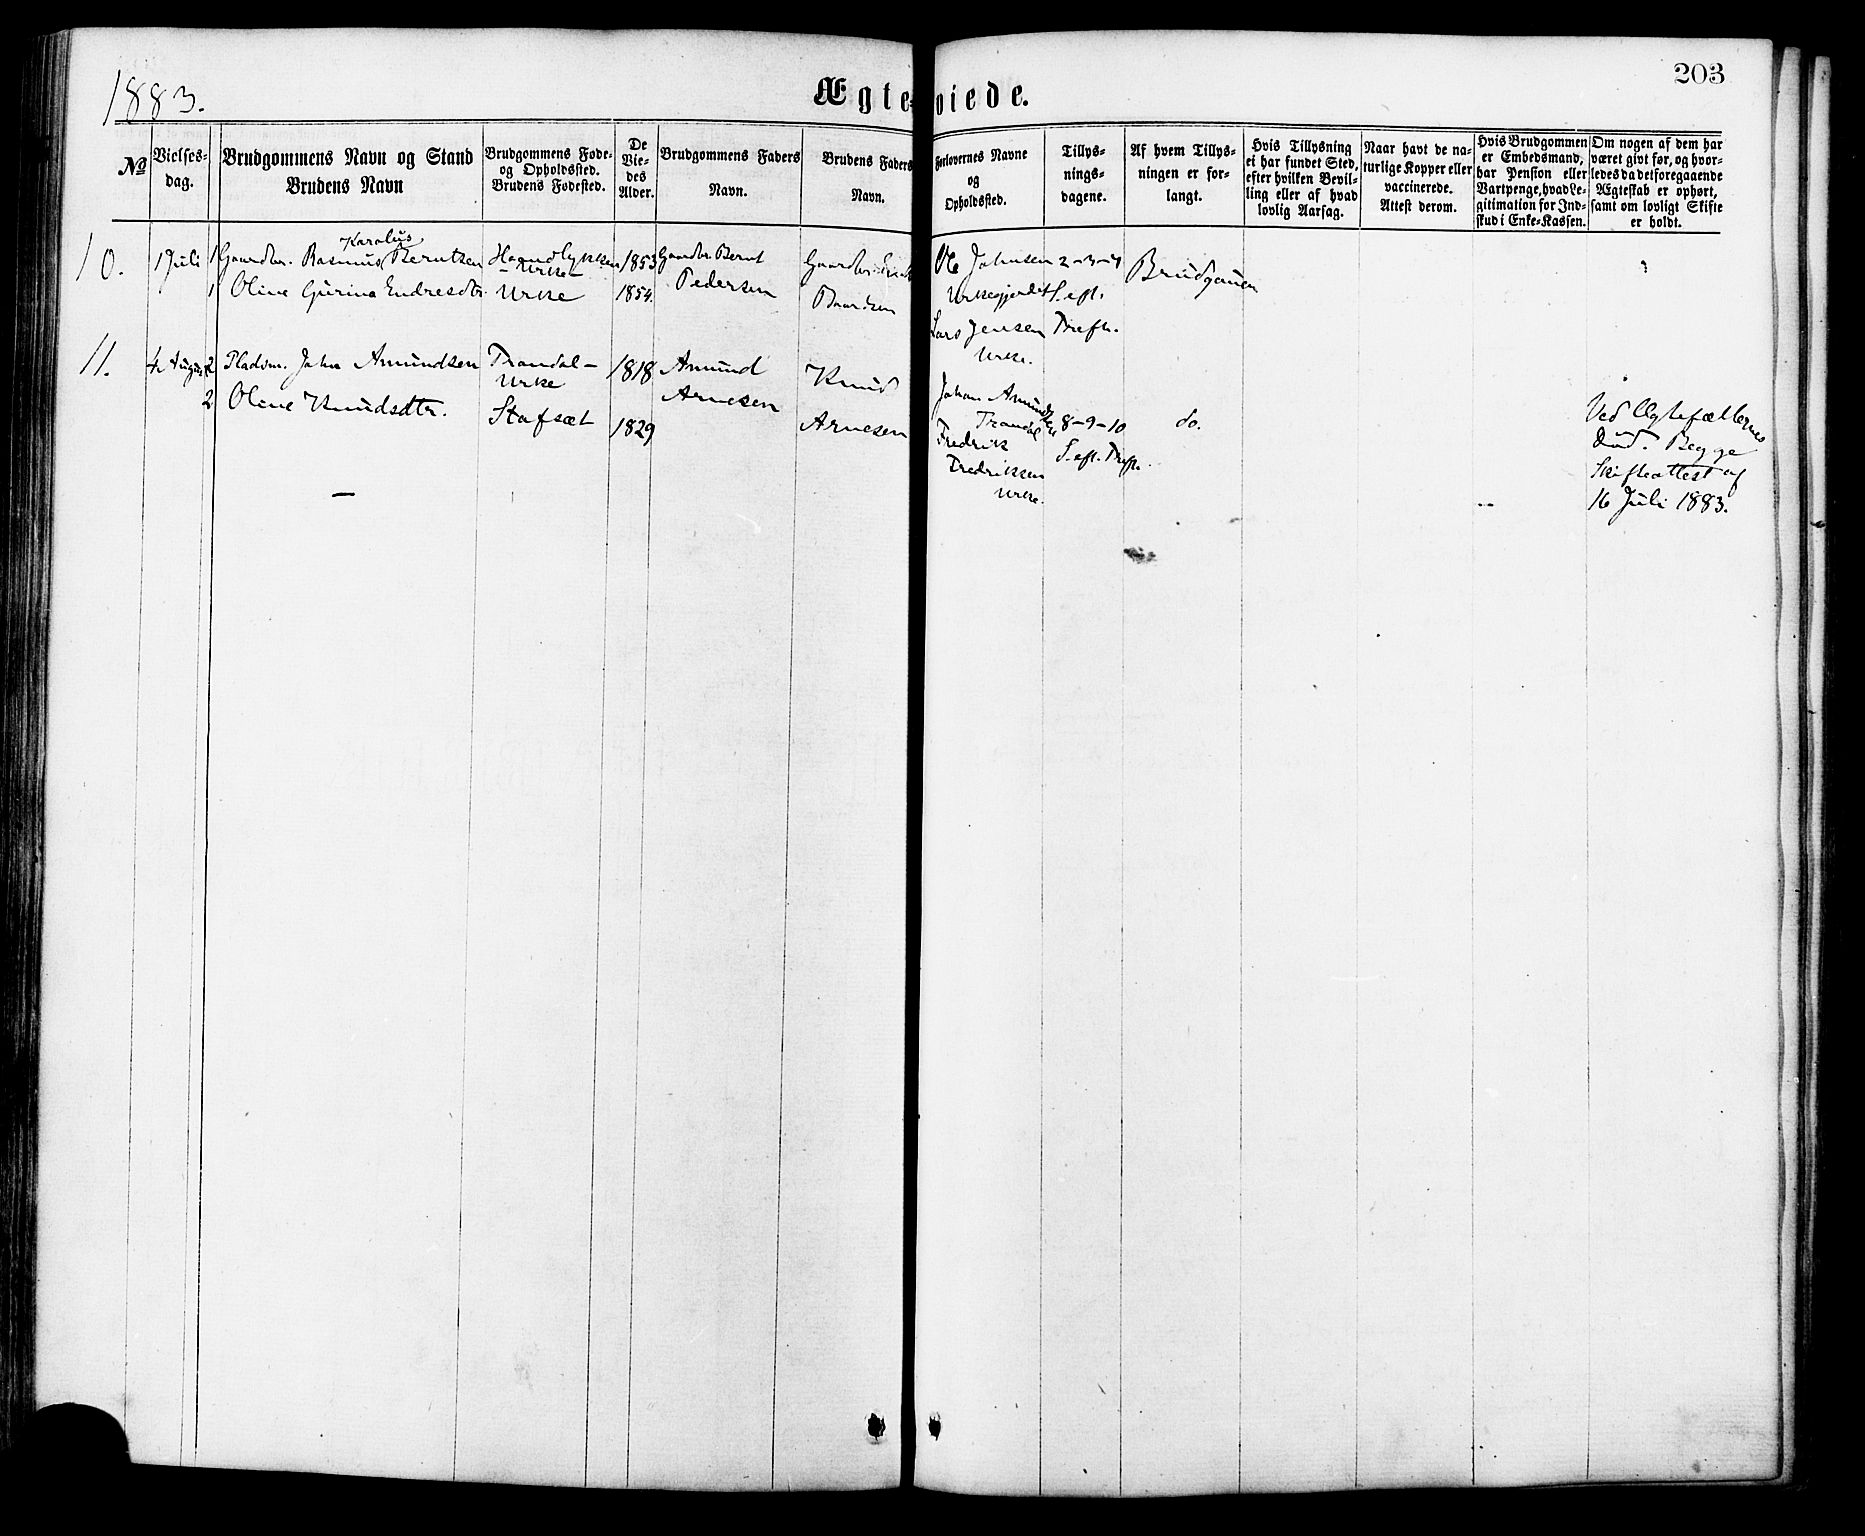 1883.
Ægteviede.
203
No
Vielses-
dag.
Brudgommens Navn og Stand
Brudens Navn
Brudgommens Føde-
og Opholdssted.
Brudens Fødested.
De
Vie-
des
Alder.
Brudgommens Faders
Navn.
Brudens Faders
Navn.
Forlovernes Navne
og
Opholdssted.
Tillys-
nings-
dagene.
Af hvem Tillys-
ningen er for-
langt.
Hvis Tillysning
ei har fundet Sted,
efter hvilken Bevil-
ling eller af hvad
lovlig Aarsag.
Naar havt de na-
turlige Kopper eller
vaccinerede.
Attest derom.
Hvis Brudgommen
er Embedsmand,
har Pension eller
Vartpenge, hvad Le-
gitimation for Ind-
skud i Enke-Kassen.
Om nogen af dem har
været givt før, og hvor-
ledes da det foregaaende
Ægteskab er ophørt,
samt om lovligt Skifte
er holdt.
10.
1 Juli
1
1
Karolus
Gaardbr. Rasmus Berntsen
Oline Gurina Endresdtr.
- Urke -
Urke
1853
1854.
Gaardbr. Bernt
Pedersen
Gaardbr.
Baardsen
Ole Johnsen
Urkegjerdet
Lars Jensen
Urke.
2-3-4
S. eft.
Trefh.
Brudgommen
11.
August
2
2
Pladsm. John Amundsen
Oline Knudsdtr.
Trandal -
Urke
Stafsæt
1818
1829
Amund
Arnesen
Knud
Arnesen
Johan Amundsen
Trandal
Fredrik
Fredriksen
Urke.
8-9-10
S. eft. Trefh.
do.
Ved Ægtefællernes
Død. Begge
Skifteattest af
16 Juli 1883.